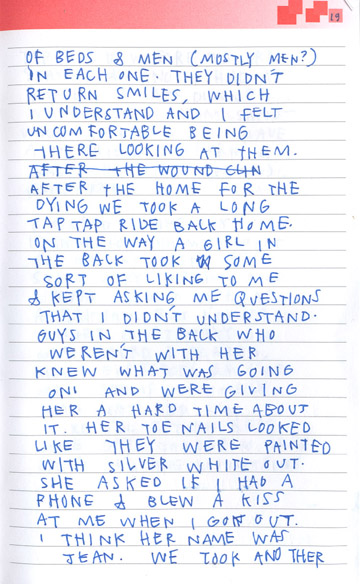 19
OF BEDS & MEN (MOSTLY MEN?)
IN EACH ONE. THEY DIDN'T
RETURN SMILES, WHICH
I UNDERSTAND AND I FELT
UNCOMFORTABLE BEING
THERE LOOKING AT THEM.
AFTER THE WOUND CLIN
AFTER THE HOME FOR THE
DYING WE TOOK A LONG
TAP TAP RIDE BACK HOME.
ON THE WAY A GIRL IN
THE BACK TOOK SOME
SORT OF LIKING TO ME
& KEPT ASKING ME QUESTIONS
THAT I DIDN'T UNDERSTAND.
GUYS IN THE BACK WHO
WEREN'T WITH HER
KNEW WHAT WAS GOING
ON! AND WERE GIVING
HER A HARD TIME ABOUT
IT. HER TOE NAILS LOOKED
LIKE THEY WERE PAINTED
WITH SILVER WHITE OUT.
SHE ASKED IF I HAD A
PHONE & BLEW A KISS
AT ME WHEN I GOT OUT.
I THINK HER NAME WAS
JEAN. WE TOOK ANOTHER